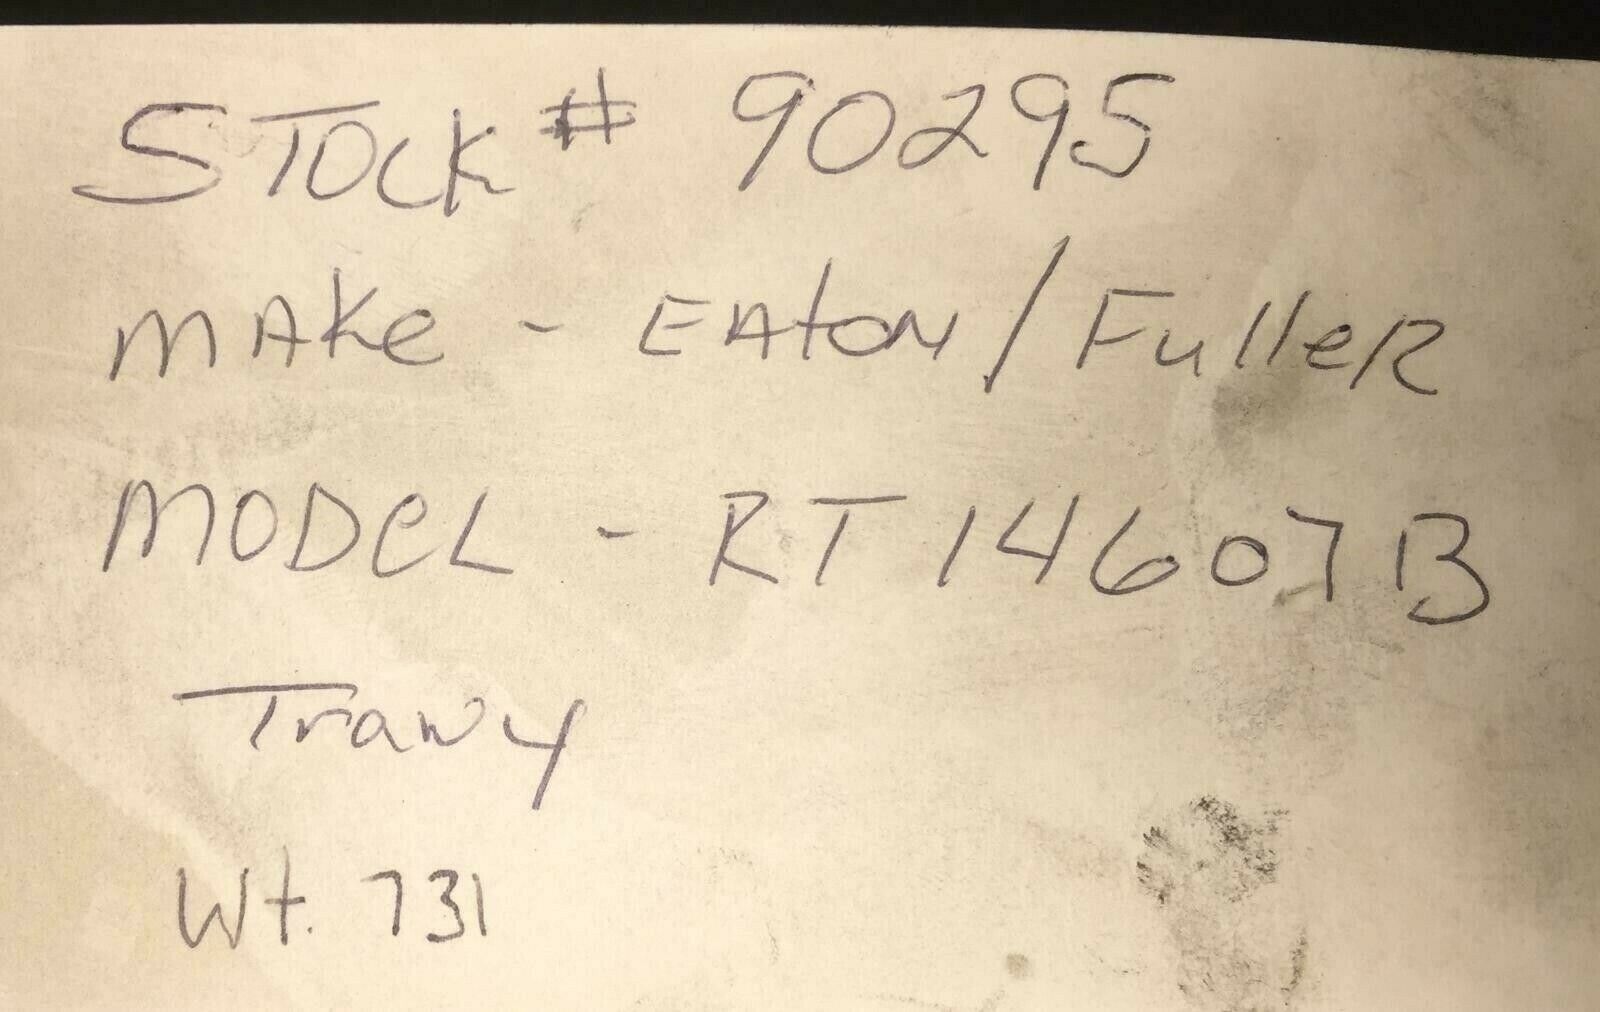 STOCK # 90295
MAKe - EAtoN / FulleR
MODeL - RT 14607B
Trany
Wt. 731